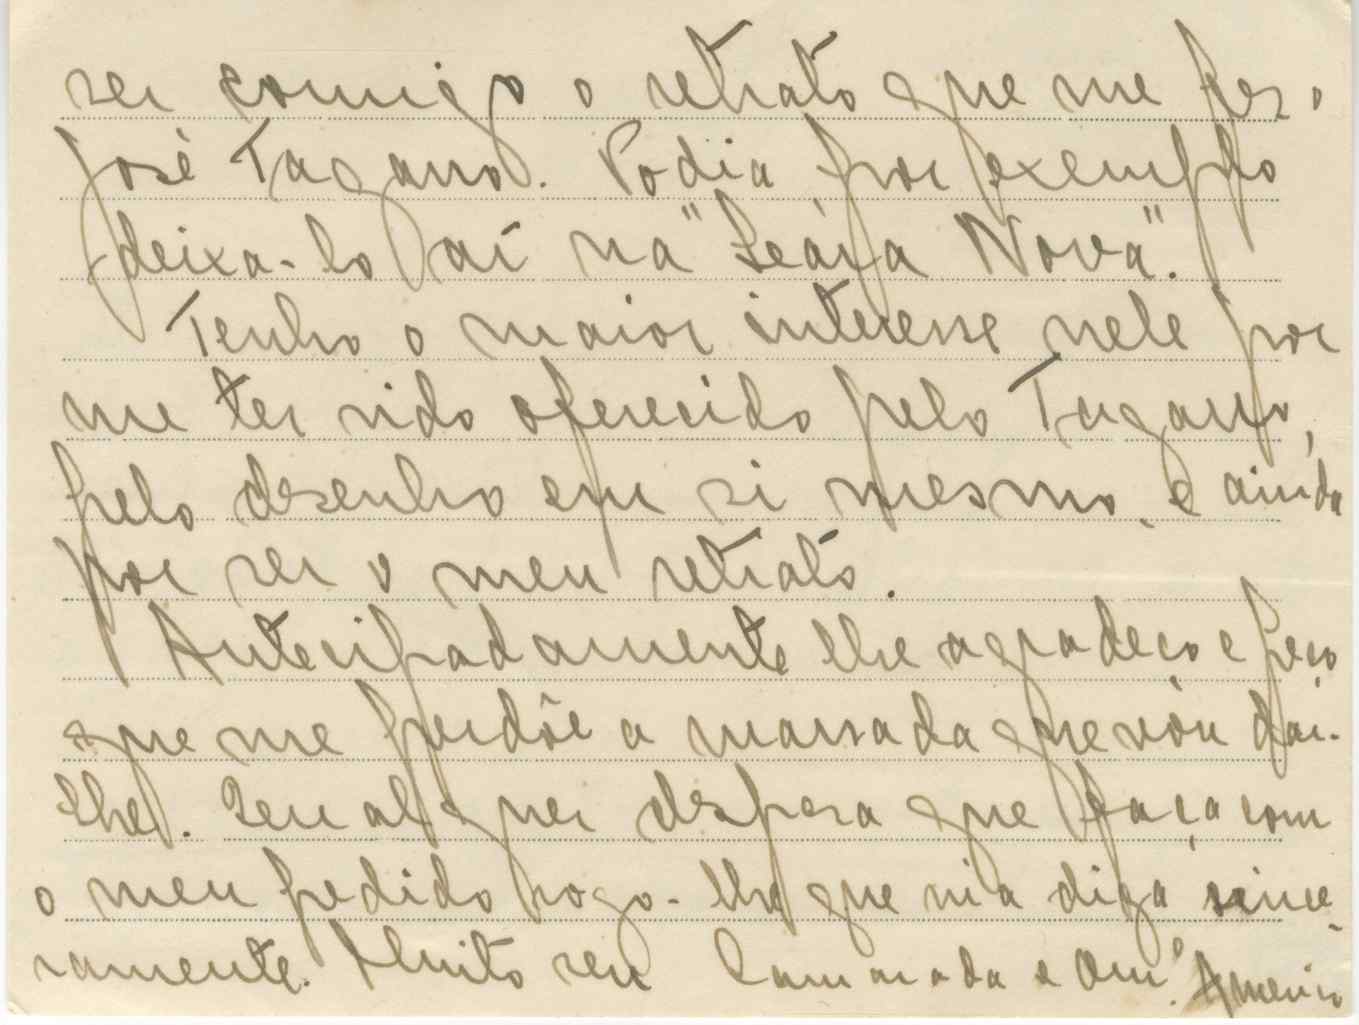 ser comigo o retrato que me fez o
José Tagarro. Podia por exemplo
deixa-lo aí na "Seára Nova".
Tenho o maior interesse nele por
me ter sido oferecido pelo Tagarro,
pelo desenho em si mesmo, e ainda
por ser o meu retrato.
Antecipadamente lhe agradeço e peço
que me perdôe a massada que vou dar-
lhe. Se qualquer despesa que faça com
o meu pedido rogo-lhe que ma diga since-
ramente. Muito seu Camarada e Am.º Americo